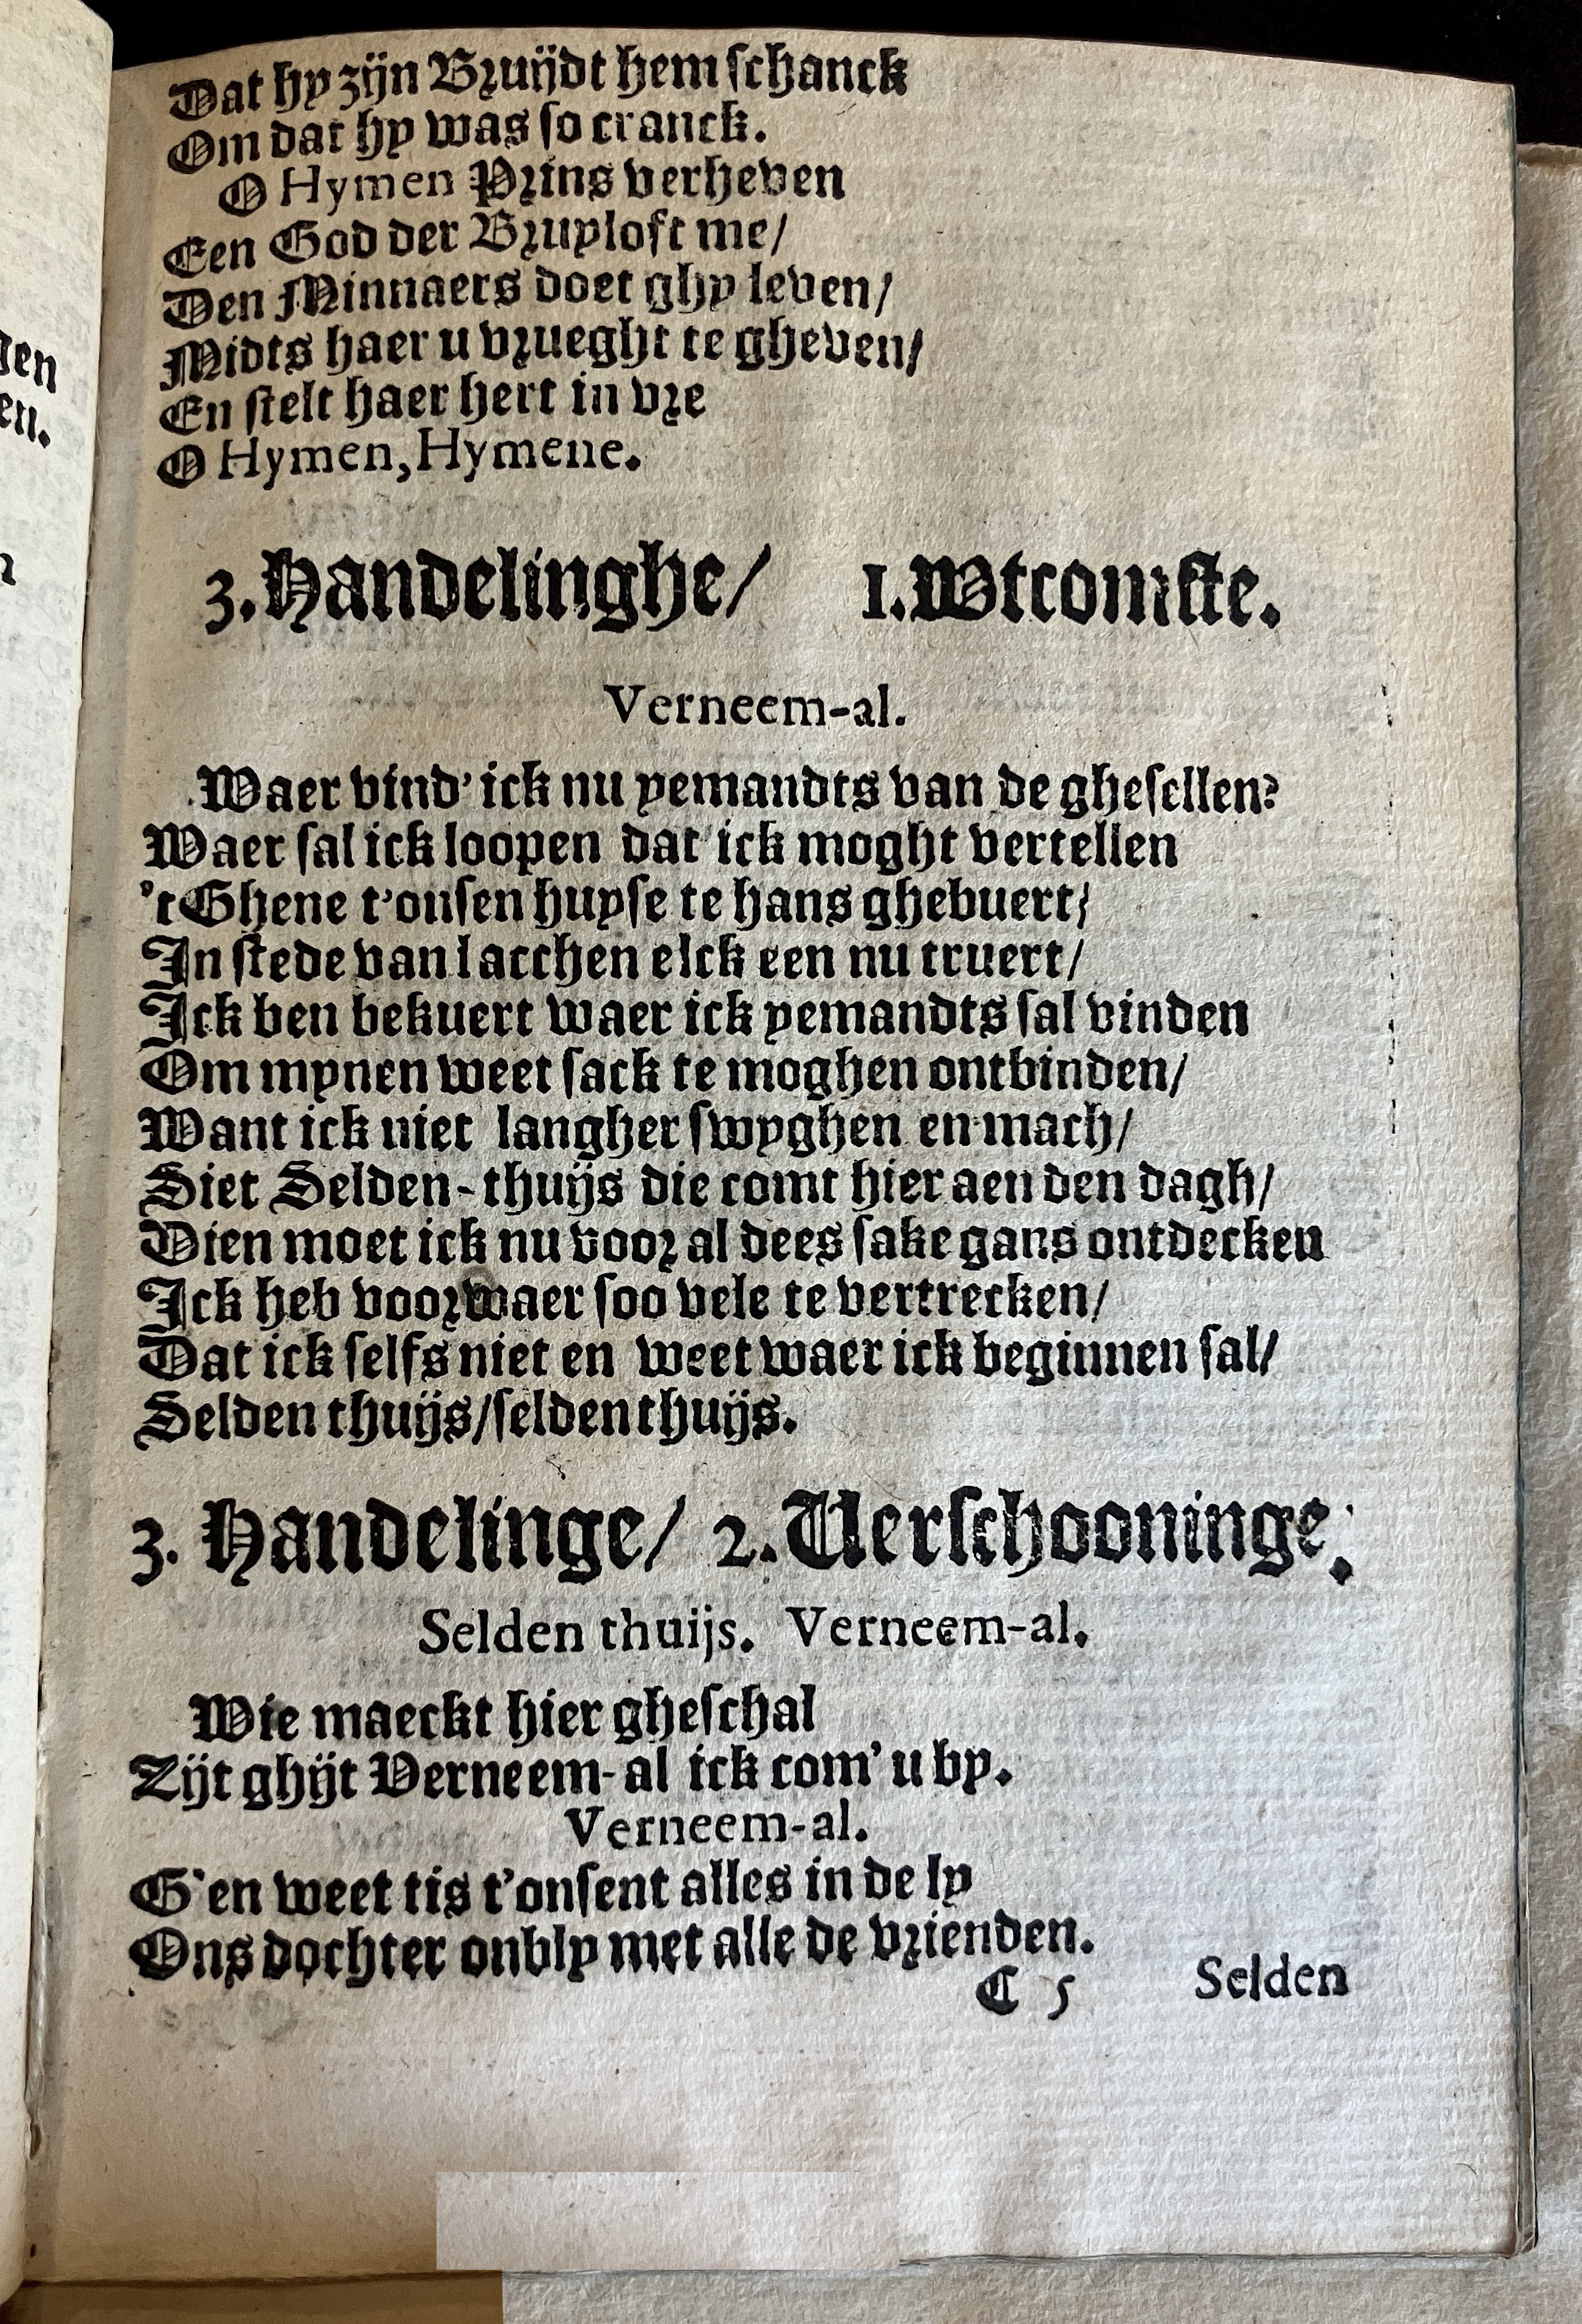 Dat hy zijn Bruijdt hem schanck
Om dat hy was so cranck.
O Hymen Prins verheven
Een God der Bruyloft me/
Den Minnaers doet ghy leven/
Midts haer u vrueght te gheven/
En stelt haer hert in vre
O Hymen, Hymene.
3. Handelinghe/ 1. Wtcomste.
Verneem-al.
Waer vind' ick nu yemandts van de ghesellen?
Waer sal ick loopen dat ick moght vertellen
't Ghene t'onsen huyse te hans ghebuert/
In stede van lacchen elck een nu truert/
Ick ben bekuert waer ick yemandts sal vinden
Om mynen weet sack te moghen ontbinden/
Want ick niet langher swyghen en mach/
Siet Selden-thuijs die comt hier aen den dagh/
Dien moet ick nu voor al dees sake gans ontdecken
Ick heb voorwaer soo vele te vertrecken/
Dat ick selfs niet en weet waer ick beginnen sal/
Selden thuijs/selden thuijs.
3. Handelinge/ 2. Verschooninge.
Selden thuijs. Verneem-al.
Wie maeckt hier gheschal
Zijt ghijt Verneem-al ick com' u by.
Verneem-al.
G'en weet tis t'onsent alles in de ly
Ons dochter onbly met alle de vrienden.
C 5 Selden